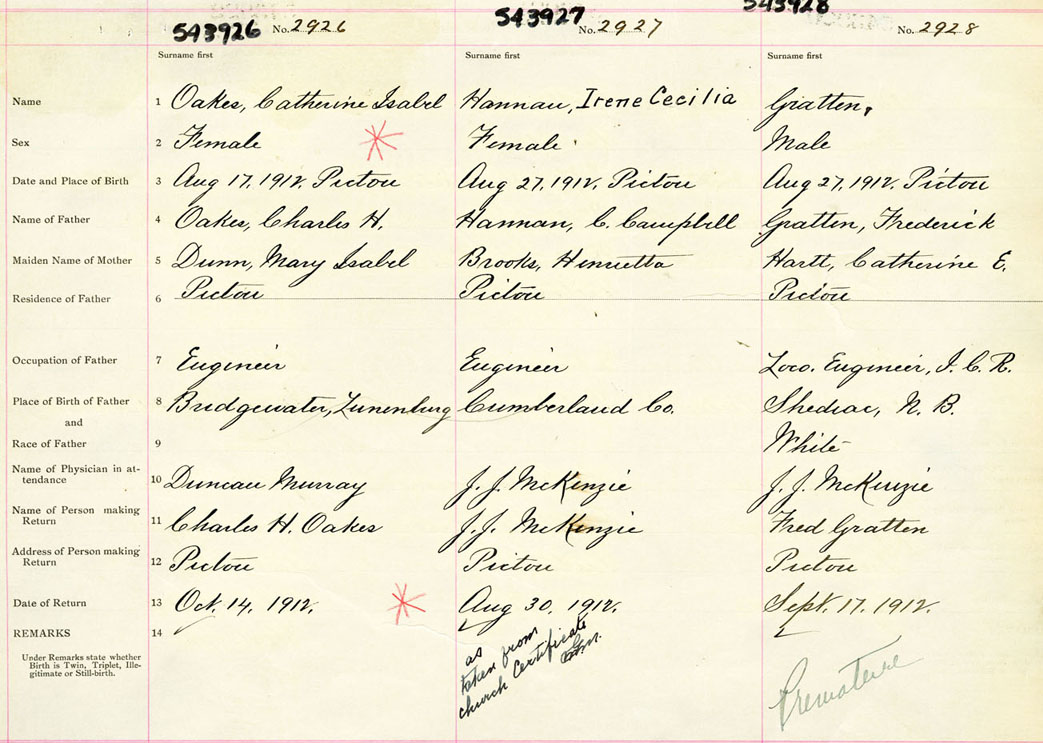 543926 No. 2926 543927 No. 2927 543928 No. 2928
Surname first Surname first Surname first
Name 1 Oakes, Catherine Isabel Hannan, Irene Cecilia Gratten,
Sex 2 Female Female Male
Date and Place of Birth 3 Aug 17, 1912, Pictou Aug 27, 1912, Pictou Aug 27, 1912, Pictou
Name of Father 4 Oakes, Charles H. Hannan, C. Campbell Gratten, Frederick
Maiden Name of Mother 5 Dunn, Mary Isabel Brooks, Henrietta Hartt, Catherine E.
Residence of Father 6 Pictou Pictou Pictou
Occupation of Father 7 Engineer Engineer Loco. Engineer, I. C. R.
Place of Birth of Father 8 Bridgewater, Lunenburg Cumberland Co. Shediac, N. B.
and
Race of Father 9 White
Name of Physician in at-
tendance 10 Duncan Murray J. J. McKenzie J. J. McKenzie
Name of Person making
Return 11 Charles H. Oakes J. J. McKenzie Fred Gratten
Address of Person making
Return 12 Pictou Pictou Pictou
Date of Return 13 Oct. 14, 1912, Aug 30, 1912, Sept. 17, 1912,
REMARKS 14
Under Remarks state whether
Birth is Twin, Triplet, Ille-
gitimate or Still-birth.
as
taken from
church Certificate
Premature